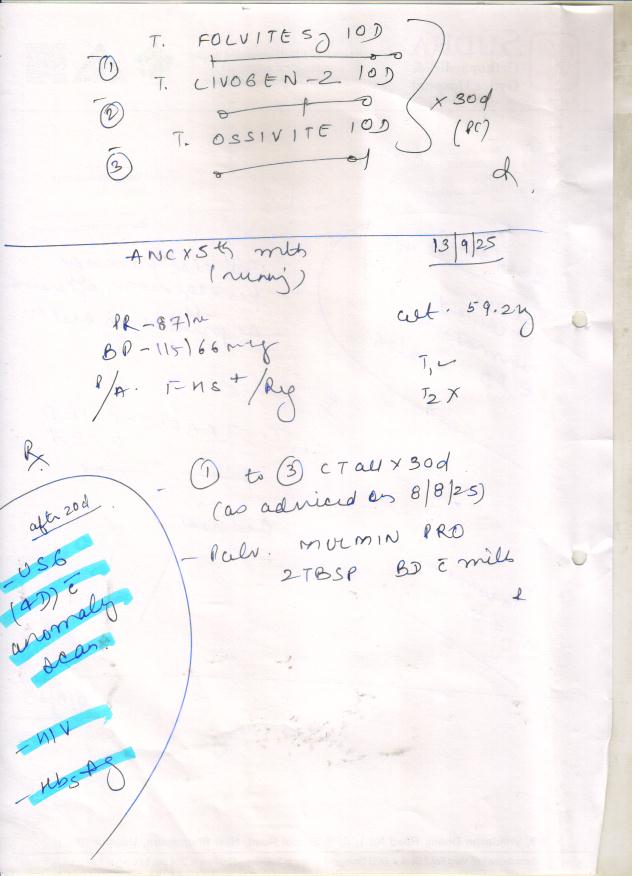 T. FOLVITE 5g 10D
①
T. LIVOGEN-Z 10D
②
T. OSSIVITE 10D
③
x 30d
(PC)
ANC x 5th mth
(runnj)
13/9/25
PR - 87/m
BP - 115/66 mmg
P/A. FHS + /Reg
wt. 59.2kg
T1 ✓
T2 X
Rx
① to ③ CT all x 30d
(as adviced on 8/8/25)
- Pulv. MULMIN PRO
2TBSP BD c̄ milk
after 20d
- USG
(4D) c̄
anomaly
scan.
- HIV
- HbsAg